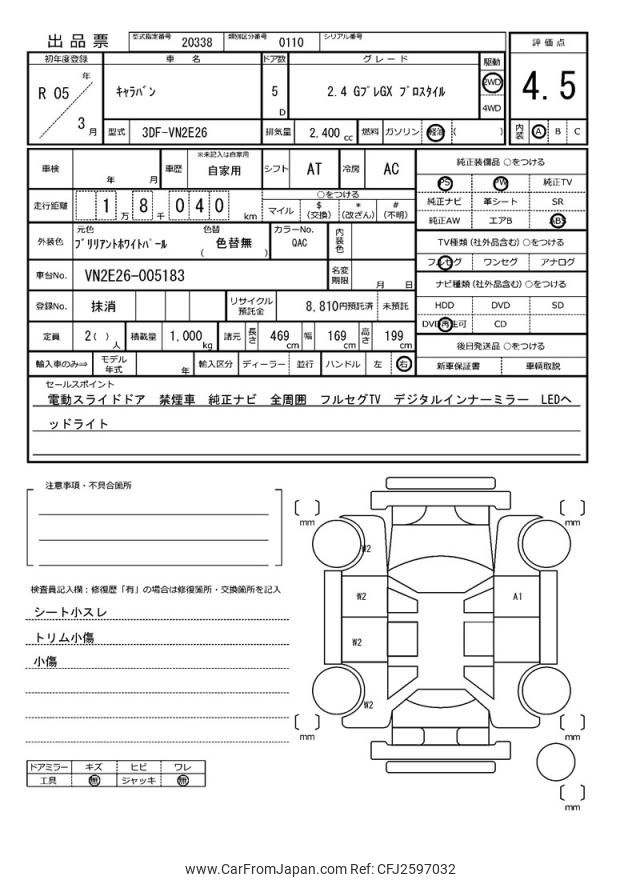 出品票 型式指定番号 20338 類別区分番号 0110 シリアル番号
初年度登録 車名 ドア数 グレード 駆動 評価点
R 05 年 3 月 キャラバン 5 D 2.4 GプレGX プロスタイル 2WD 4WD 4.5
型式 3DF-VN2E26 排気量 2,400 cc 燃料 ガソリン 軽油 ( ) 内装 A B C
車検 年 月 車歴 ※未記入は自家用 自家用 シフト AT 冷房 AC 純正装備品 ○をつける
PS PW 純正TV
走行距離 1 万 8 千 0 4 0 km ○をつける 純正ナビ 革シート SR
マイル $(交換) *(改ざん) #(不明) 純正AW エアB ABS
外装色 元色 ブリリアントホワイトパール 色替 ( 色替無 ) カラーNo. QAC 内装色 TV種類(社外品含む)○をつける
フルセグ ワンセグ アナログ
車台No. VN2E26-005183 名変期限 月 日 ナビ種類(社外品含む)○をつける
登録No. 抹消 リサイクル預託金 8,810円預託済 未預託 HDD DVD SD
定員 2( ) 人 積載量 1,000 kg 諸元 長さ 469 cm 幅 169 cm 高さ 199 cm DVD再生可 CD
後日発送品 ○をつける
輸入車のみ⇒ モデル年式 年 輸入区分 ディーラー 並行 ハンドル 左 右 新車保証書 車輌取説
セールスポイント
電動スライドドア 禁煙車 純正ナビ 全周囲 フルセグTV デジタルインナーミラー LEDヘ
ッドライト
注意事項・不具合箇所
検査員記入欄:修復歴「有」の場合は修復箇所・交換箇所を記入
シート小スレ
トリム小傷
小傷
ドアミラー キズ ヒビ ワレ
工具 無 ジャッキ 無
mm mm
W2
W2 A1
W2
W2
mm mm
mm
www.CarFromJapan.com Ref: CFJ2597032